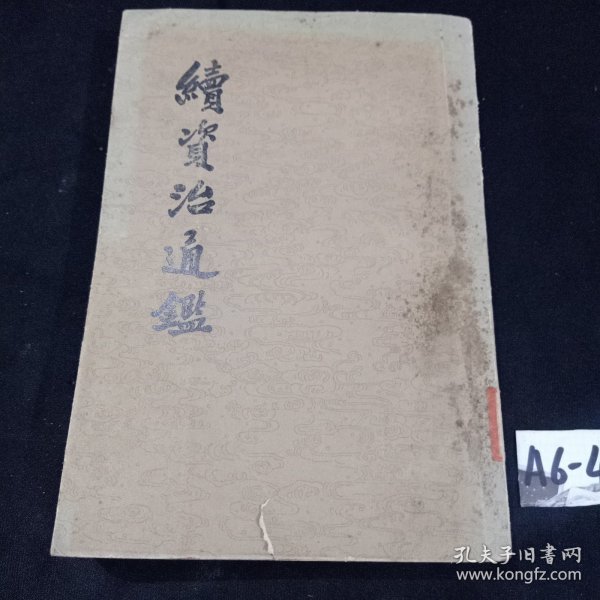 續資治通鑑
A6-4
孔夫子旧書网
www.kongfz.com